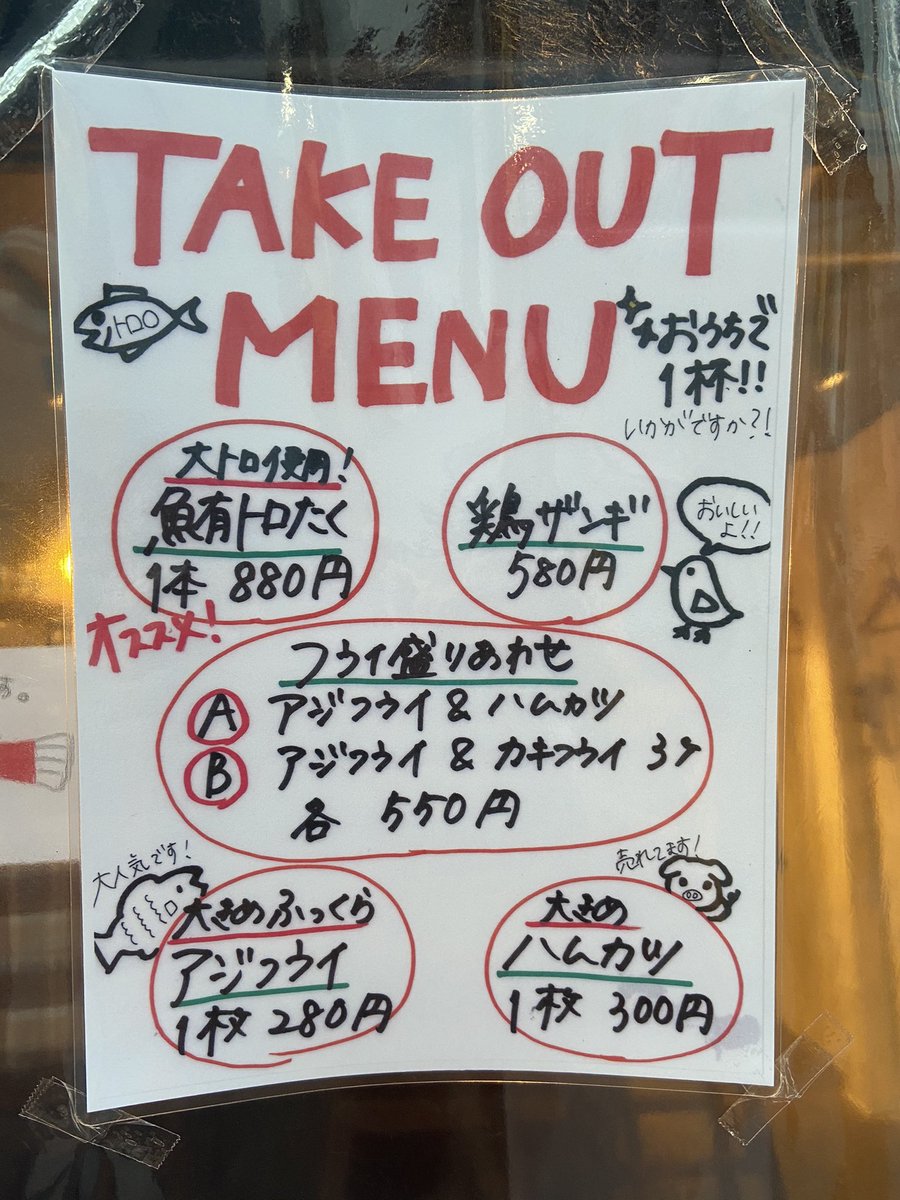 TAKE OUT
MENU
トロ
おうちで
1杯!!
いかがですか?!
大トロ使用!
鮪トロたく
1本 880円
鶏ザンギ
580円
おいしい
よ!!
オススメ!
フライ盛りあわせ
A アジフライ & ハムカツ
B アジフライ & カキフライ 3ヶ
各 550円
大人気です!
大きめふっくら
アジフライ
1枚 280円
売れてます!
大きめ
ハムカツ
1枚 300円